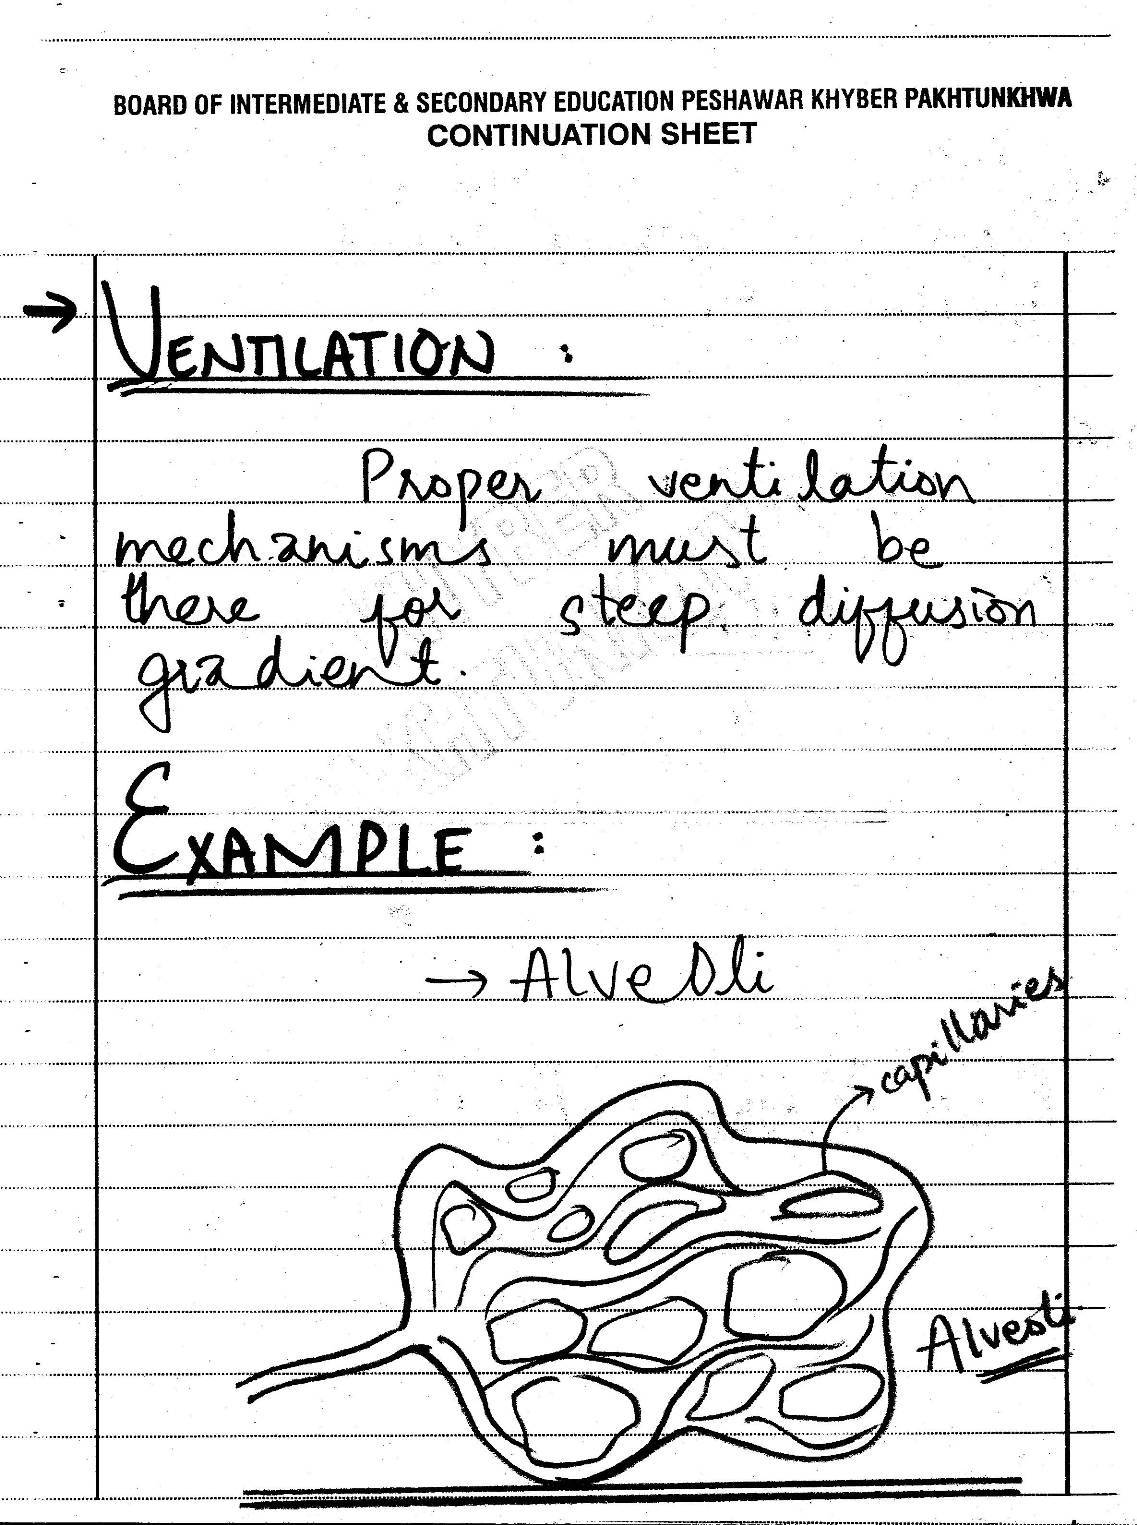 BOARD OF INTERMEDIATE & SECONDARY EDUCATION PESHAWAR KHYBER PAKHTUNKHWA
CONTINUATION SHEET
→ VENTILATION :
Proper ventilation
mechanisms must be
there for steep diffusion
gradient.
EXAMPLE :
→ Alveoli
capillaries
Alveoli